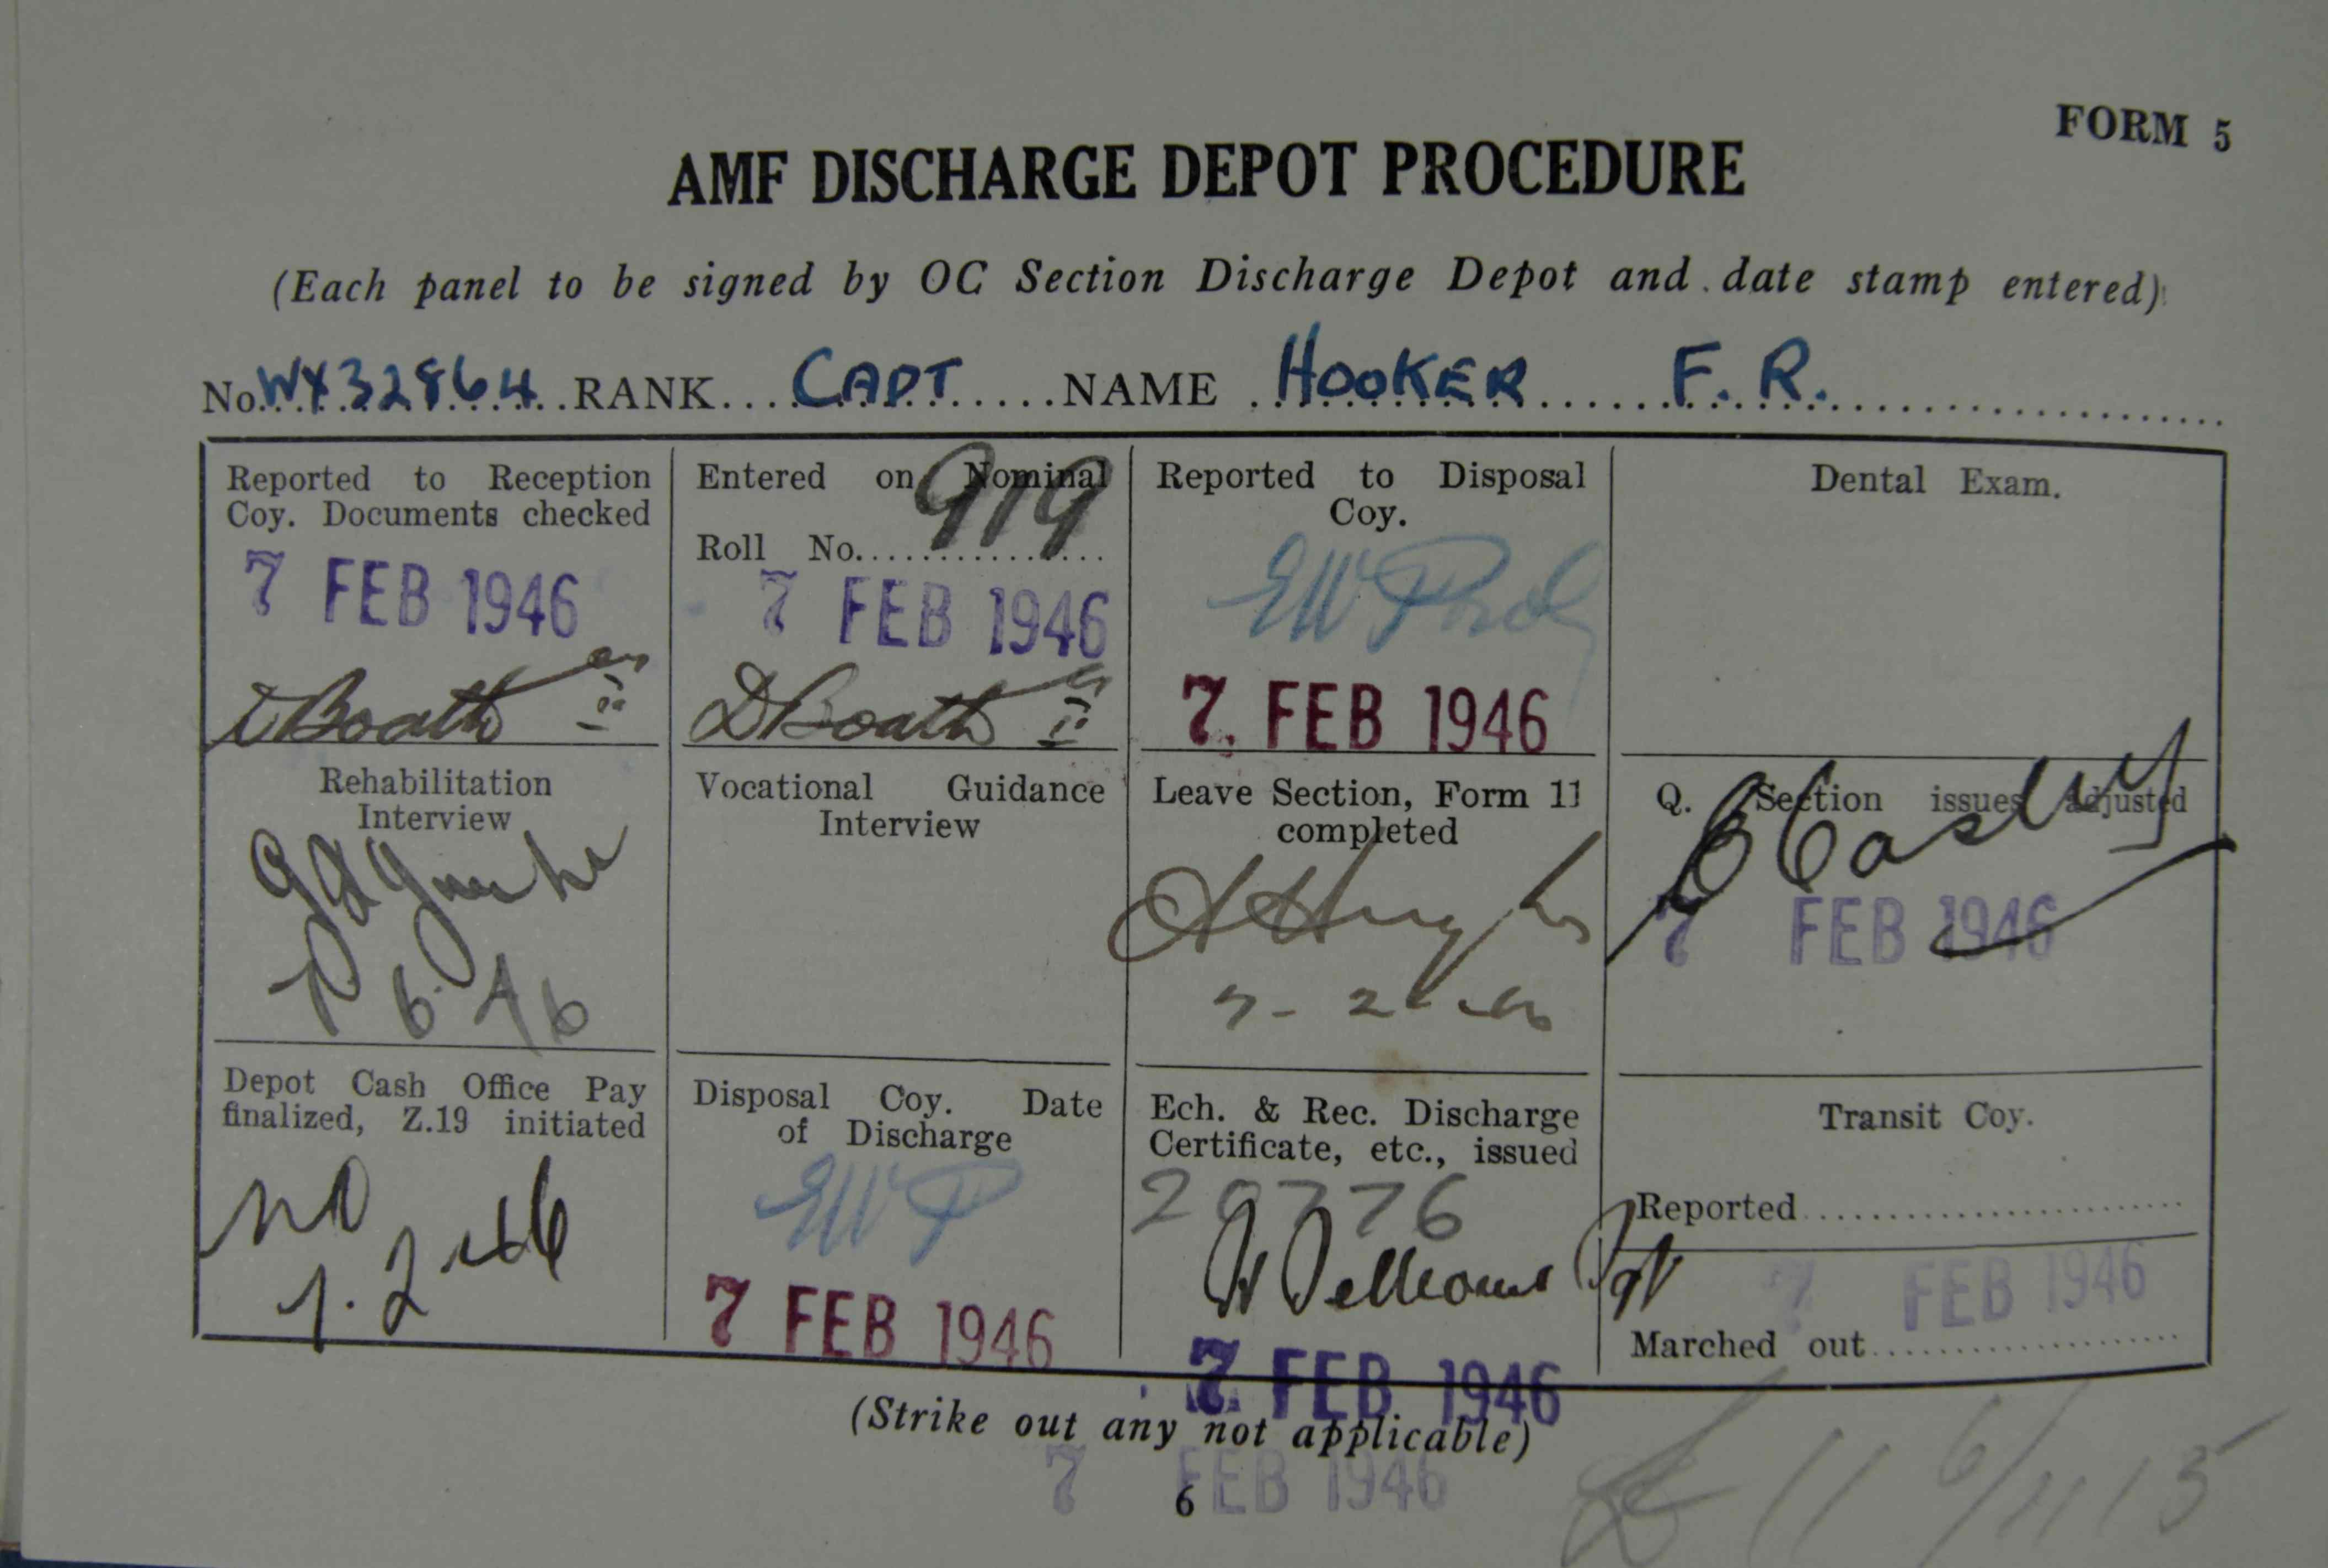 FORM 5
AMF DISCHARGE DEPOT PROCEDURE
(Each panel to be signed by OC Section Discharge Depot and date stamp entered)
No. WX32864 RANK CAPT NAME HOOKER F. R.
Reported to Reception
Coy. Documents checked
7 FEB 1946
Entered on Nominal
Roll No. 919
7 FEB 1946
Reported to Disposal
Coy.
7 FEB 1946
Dental Exam.
Rehabilitation
Interview
Vocational Guidance
Interview
Leave Section, Form 11
completed
Q. Section issues adjusted
7 FEB 1946
Depot Cash Office Pay
finalized, Z.19 initiated
Disposal Coy. Date
of Discharge
EWP
7 FEB 1946
Ech. & Rec. Discharge
Certificate, etc., issued
7 FEB 1946
Transit Coy.
Reported
7 FEB 1946
Marched out
(Strike out any not applicable)
7 FEB 1946
6